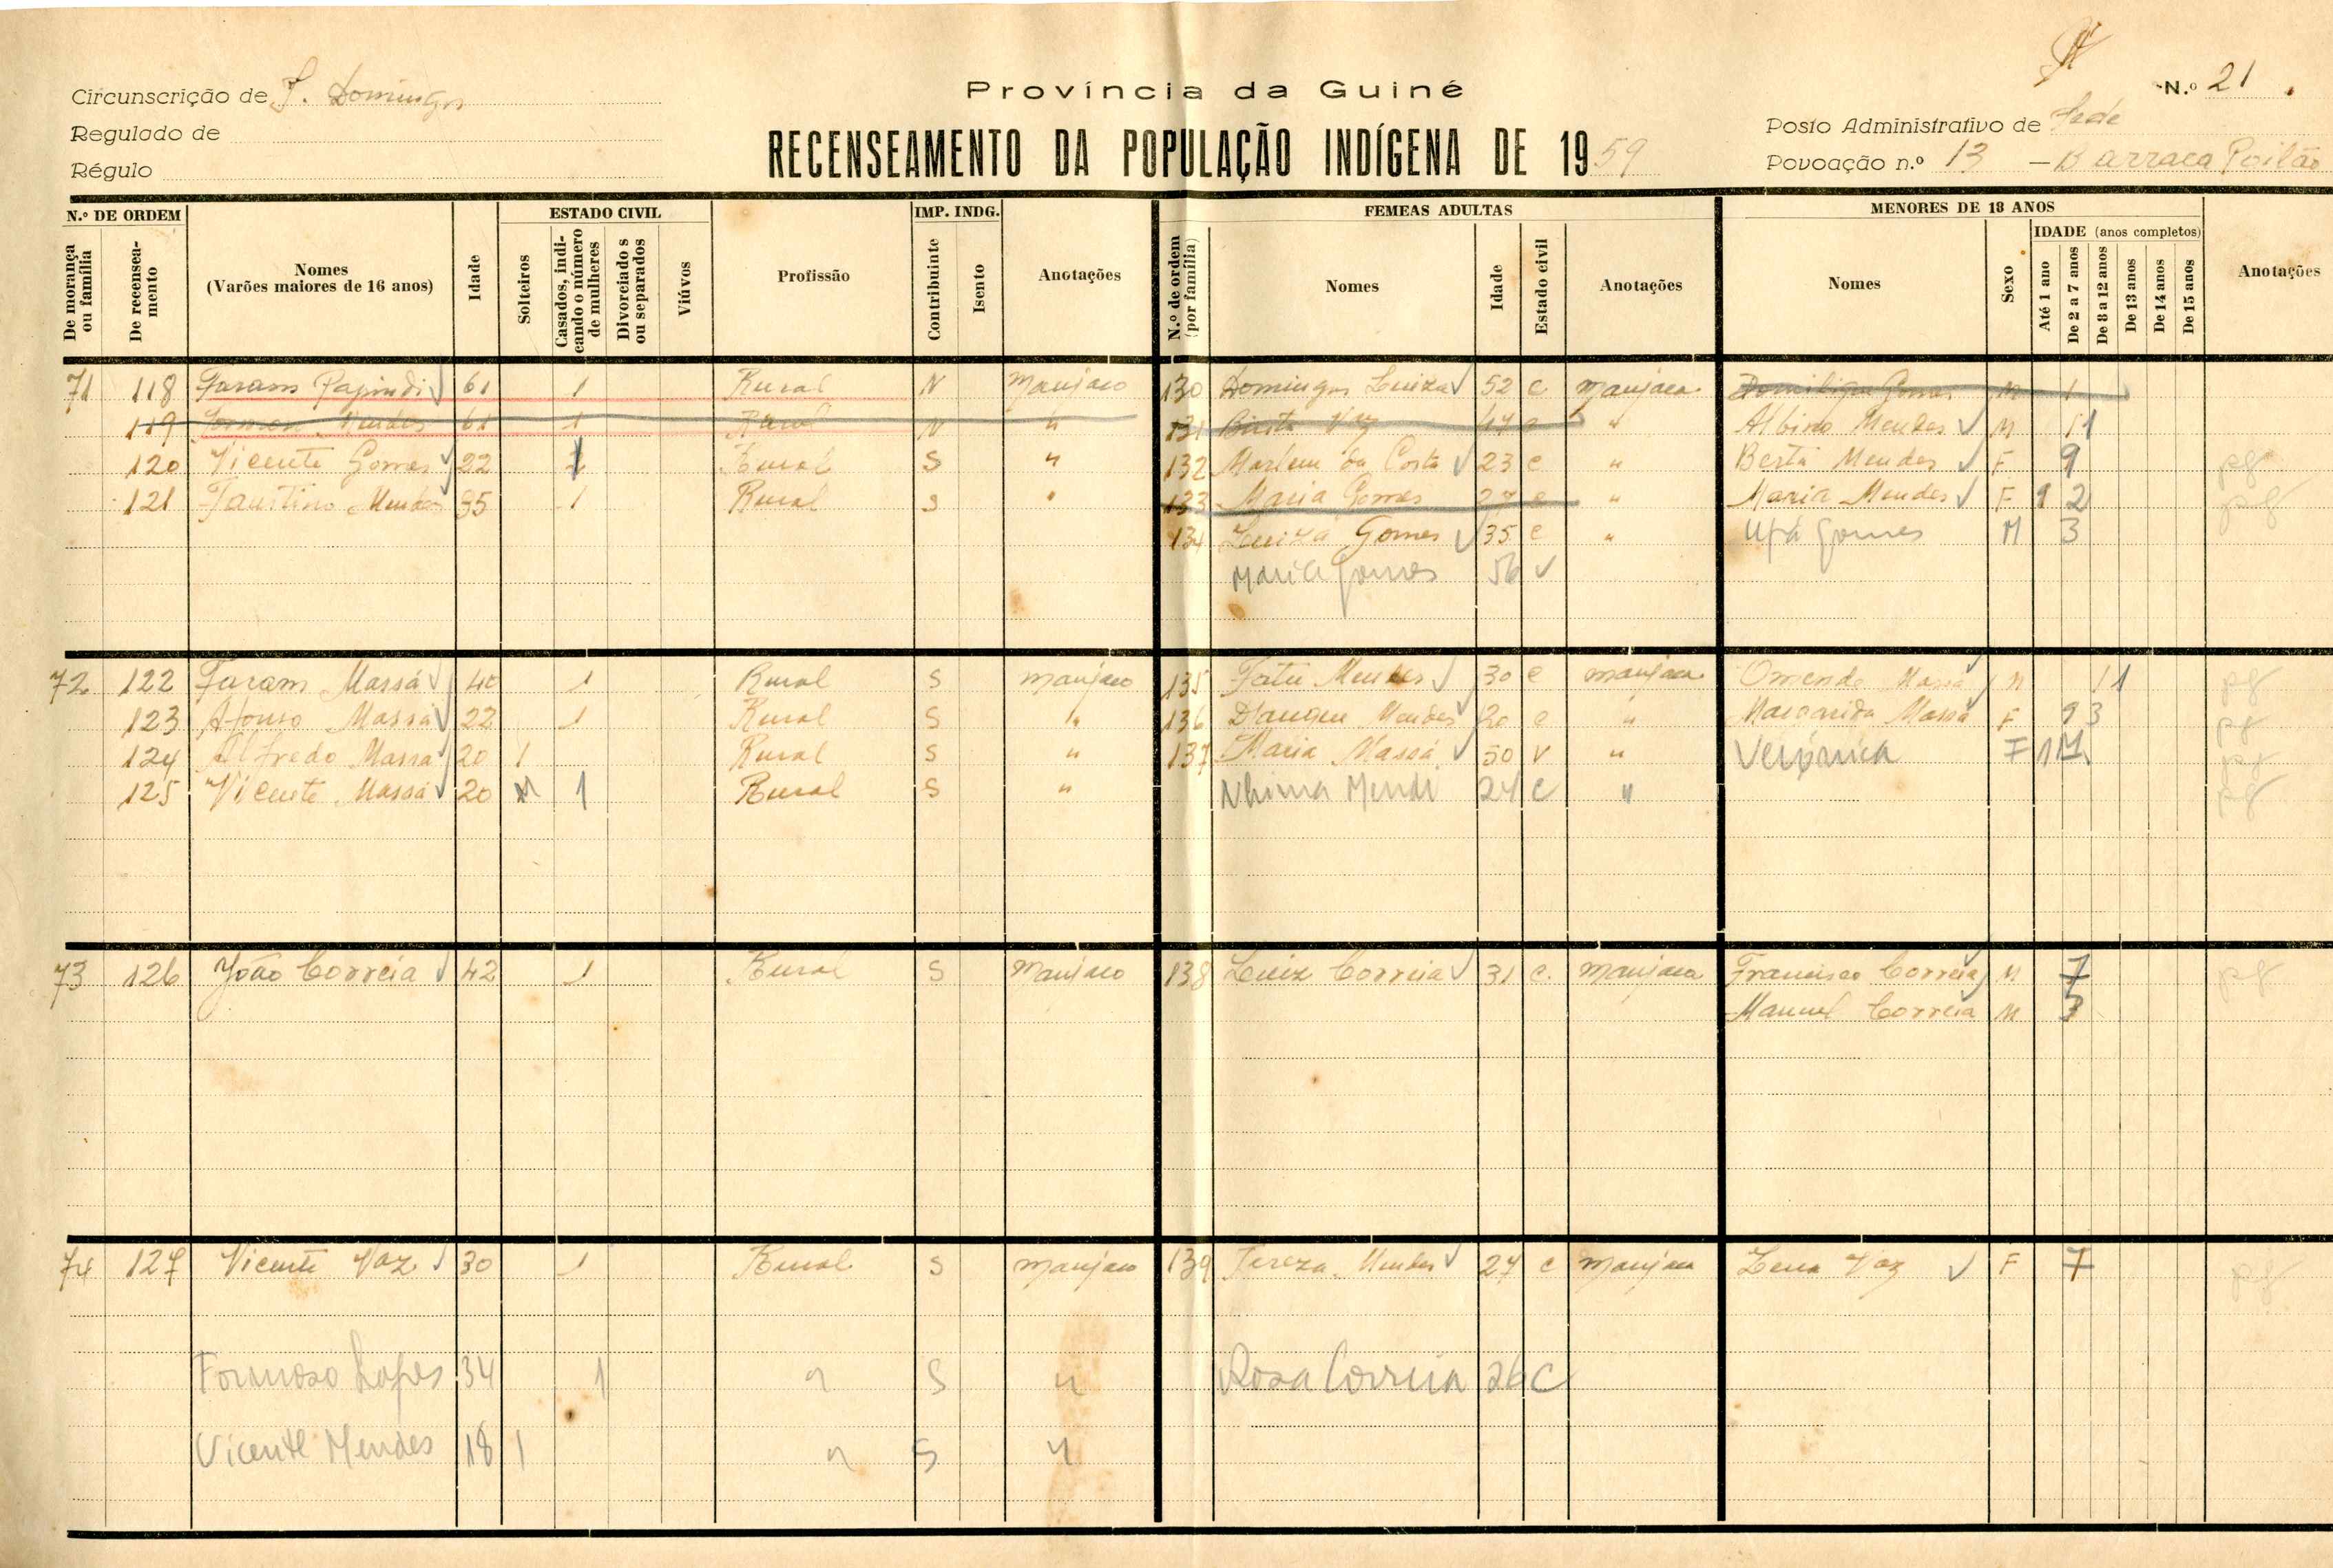 Província da Guiné
N.º 21
Circunscrição de S. Domingos
Regulado de
Régulo
RECENSEAMENTO DA POPULAÇÃO INDÍGENA DE 1959
Posto Administrativo de Sede
Povoação n.º 13 - Barraca Poilão
N.º DE ORDEM
De morança ou família
De recenseamento
Nomes
(Varões maiores de 16 anos)
Idade
ESTADO CIVIL
Solteiros
Casados, indicando o número de mulheres
Divorciados ou separados
Viúvos
Profissão
IMP. INDG.
Contribuinte
Isento
Anotações
FEMEAS ADULTAS
N.º de ordem (por família)
Nomes
Idade
Estado civil
Anotações
MENORES DE 18 ANOS
Nomes
Sexo
IDADE (anos completos)
Até 1 ano
De 2 a 7 anos
De 8 a 12 anos
De 13 anos
De 14 anos
De 15 anos
Anotações
71 118 Faram Papindi 61 1 Rural N Manjaco 130 Domingas Luiza 52 C Manjaca Gomes M 1
119 Mendes 61 1 Rural N " 131 Vaz 47 " Albino Mendes M 11
120 Vicente Gomes 22 Rural S " 132 Marlem da Costa 23 C " Berta Mendes F 9 pg
121 Faustino Mendes 35 1 Rural S " 133 Maria Gomes 27 C " Maria Mendes F 2 pg
134 Luiza Gomes 35 C " Upá Gomes M 3
Maria Gomes 56 V
72 122 Faram Massá 40 1 Rural S Manjaco 135 Fatu Mendes 30 C Manjaca Omende Massá M 11 pg
123 Afonso Massá 22 1 Rural S " 136 Mendes 20 C " Margarida Massá F 9 3 pg
124 Alfredo Massá 20 1 Rural S " 137 Maria Massá 50 V " Verónica F pg
125 Vicente Massá 20 1 Rural S " Nhima Mendi 24 C " pg
73 126 João Correia 42 1 Rural S Manjaco 138 Luiz Correia 31 C. Manjaca Francisco Correia M 7 pg
Manuel Correia M 3
74 127 Vicente Vaz 30 1 Rural S Manjaco 139 Tereza Mendes 27 C Manjaca Lena Vaz F 7 pg
Formoso Lopes 34 1 " S " Rosa Correia 26 C
Vicente Mendes 18 1 " S "